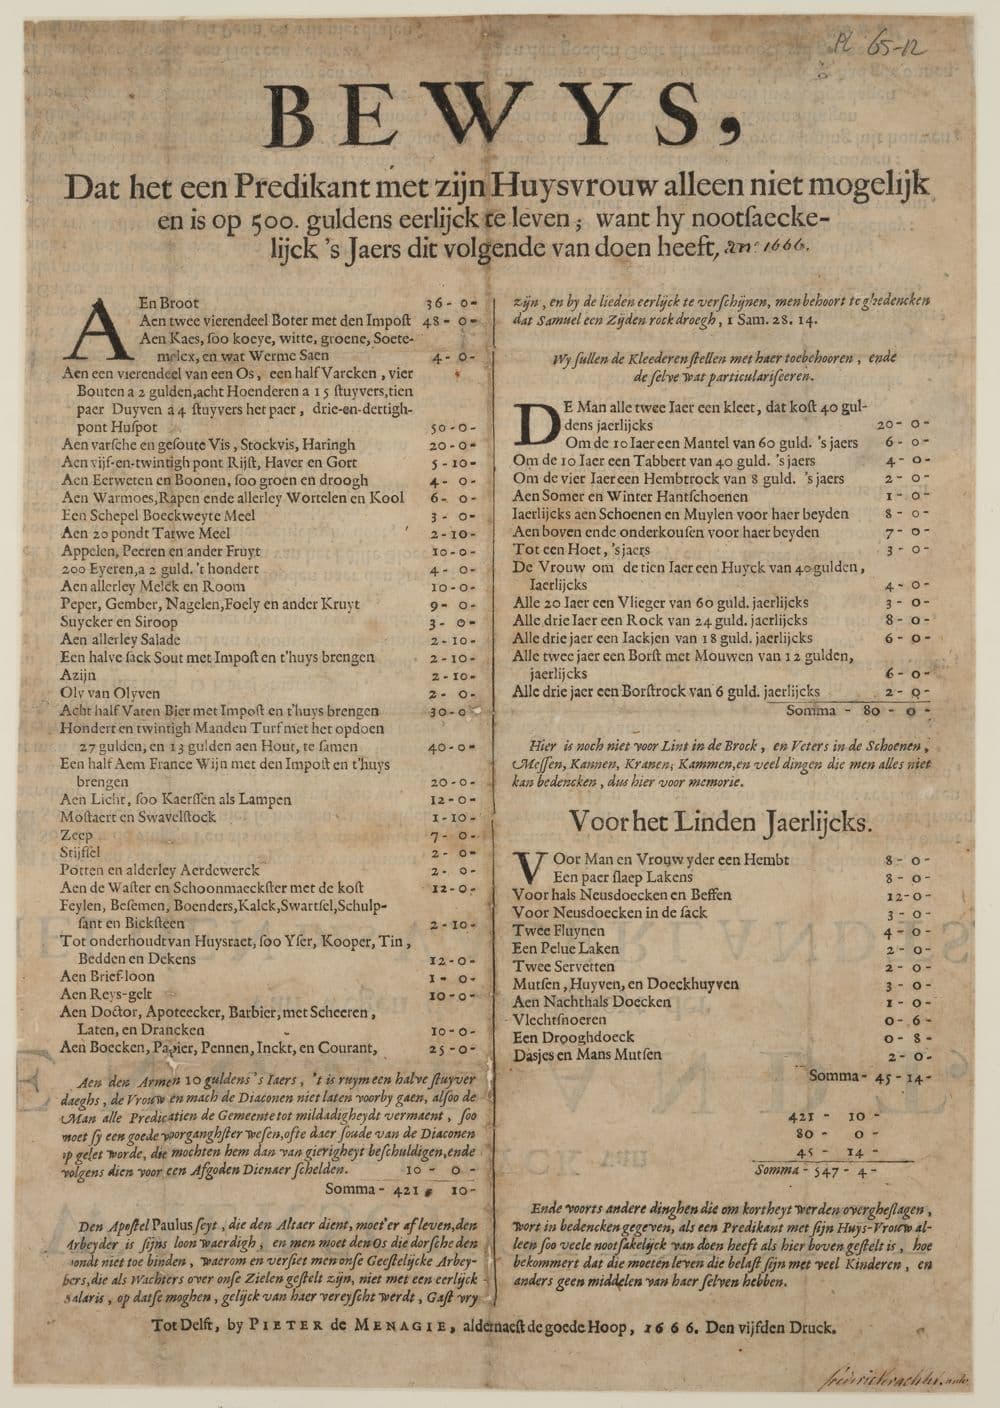 Pl 65-12
BEWYS,
Dat het een Predikant met zijn Huysvrouw alleen niet mogelijk
en is op 500. guldens eerlijck te leven; want hy nootſaecke-
lijck 's Jaers dit volgende van doen heeft, Anº 1666.
AEn Broot 36- 0-
Aen twee vierendeel Boter met den Impoſt 48- 0-
Aen Kaes, ſoo koeye, witte, groene, Soete-
melcx, en wat Werme Saen 4- 0-
Aen een vierendeel van een Os, een half Varcken, vier
Bouten a 2 gulden, acht Hoenderen a 15 ſtuyvers, tien
paer Duyven a 4 ſtuyvers het paer, drie-en-dertigh-
pont Huſpot 50-0-
Aen varſche en geſoute Vis, Stockvis, Haringh 20-0-
Aen vijf-en-twintigh pont Rijſt, Haver en Gort 5-10-
Aen Eerweten en Boonen, ſoo groen en droogh 4- 0-
Aen Warmoes, Rapen ende allerley Wortelen en Kool 6- 0-
Een Schepel Boeckweyte Meel 3- 0-
Aen 20 pondt Tarwe Meel 2-10-
Appelen, Peeren en ander Fruyt 10-0-
200 Eyeren, a 2 guld. 't hondert 4- 0-
Aen allerley Melck en Room 10-0-
Peper, Gember, Nagelen, Foely en ander Kruyt 9- 0-
Suycker en Siroop 3- 0-
Aen allerley Salade 2-10-
Een halve ſack Sout met Impoſt en t'huys brengen 2-10-
Azijn 2-10-
Oly van Olyven 2- 0-
Acht half Vaten Bier met Impoſt en t'huys brengen 30-0
Hondert en twintigh Manden Turf met het opdoen
27 gulden, en 13 gulden aen Hout, te ſamen 40-0-
Een half Aem France Wijn met den Impoſt en t'huys
brengen 20-0-
Aen Licht, ſoo Kaerſſen als Lampen 12-0-
Moſtaert en Swavelſtock 1-10-
Zeep 7- 0-
Stijſſel 2- 0-
Potten en alderley Aerdewerck 2- 0-
Aen de Waſter en Schoonmaeckſter met de koſt 12-0-
Feylen, Beſemen, Boenders, Kalck, Swartſel, Schulp-
ſant en Bickſteen 2-10-
Tot onderhoudt van Huysraet, ſoo Yſer, Kooper, Tin,
Bedden en Dekens 12-0-
Aen Brief-loon 1- 0-
Aen Reys-gelt 10-0-
Aen Doctor, Apoteecker, Barbier, met Scheeren,
Laten, en Drancken 10-0-
Aen Boecken, Papier, Pennen, Inckt, en Courant, 25-0-
Aen den Armen 10 guldens 's Iaers, 't is ruym een halve ſtuyver
daeghs, de Vrouw en mach de Diaconen niet laten voorby gaen, alſoo de
Man alle Predicatien de Gemeente tot mildadigheydt vermaent, ſoo
moet ſy een goede voorganghſter weſen, ofte daer ſoude van de Diaconen
op gelet worde, die mochten hem dan van gierigheyt beſchuldigen, ende
volgens dien voor een Afgoden Dienaer ſchelden. 10 - 0 -
Somma- 421 - 10-
Den Apoſtel Paulus ſeyt, die den Altaer dient, moet'er af leven, den
Arbeyder is ſijns loon waerdigh, en men moet den Os die dorſche den
mondt niet toe binden, waerom en verſiet men onſe Geeſtelijcke Arbey-
ders, die als Wachters over onſe Zielen geſtelt zijn, niet met een eerlijck
Salaris, op datſe moghen, gelijck van haer vereyſcht werdt, Gaſt vry
zijn, en by de lieden eerlijck te verſchijnen, men behoort te ghedencken
dat Samuel een Zijden rock droegh, 1 Sam. 28. 14.
Wy ſullen de Kleederen ſtellen met haer toebehooren, ende
de ſelve wat particulariſeeren.
DE Man alle twee Iaer een kleet, dat koſt 40 gul-
dens jaerlijcks 20- 0-
Om de 10 Iaer een Mantel van 60 guld. 's jaers 6- 0-
Om de 10 Iaer een Tabbert van 40 guld. 's jaers 4- 0-
Om de vier Iaer een Hembtrock van 8 guld. 's jaers 2- 0-
Aen Somer en Winter Hantſchoenen 1- 0-
Iaerlijcks aen Schoenen en Muylen voor haer beyden 8- 0-
Aen boven ende onderkouſen voor haer beyden 7- 0-
Tot een Hoet, 's jaers 3- 0-
De Vrouw om de tien Iaer een Huyck van 40 gulden,
Iaerlijcks 4- 0-
Alle 20 Iaer een Vlieger van 60 guld. jaerlijcks 3- 0-
Alle drie Iaer een Rock van 24 guld. jaerlijcks 8- 0-
Alle drie jaer een Iackjen van 18 guld. jaerlijcks 6- 0-
Alle twee jaer een Borſt met Mouwen van 12 gulden,
jaerlijcks 6- 0-
Alle drie jaer een Borſtrock van 6 guld. jaerlijcks 2- 0-
Somma - 80- 0-
Hier is noch niet voor Lint in de Brock, en Veters in de Schoenen,
Meſſen, Kannen, Kranen, Kammen, en veel dingen die men alles niet
kan bedencken, dus hier voor memorie.
Voor het Linden Jaerlijcks.
VOor Man en Vrouw yder een Hembt 8- 0-
Een paer ſlaep Lakens 8- 0-
Voor hals Neusdoecken en Beffen 12-0-
Voor Neusdoecken in de ſack 3- 0-
Twee Fluynen 4- 0-
Een Pelue Laken 2- 0-
Twee Servetten 2- 0-
Mutſen, Huyven, en Doeckhuyven 3- 0-
Aen Nachthals Doecken 1- 0-
Vlechtſnoeren 0- 6-
Een Drooghdoeck 0- 8-
Dasjes en Mans Mutſen 2- 0-
Somma- 45-14-
421 - 10 -
80 - 0 -
45 - 14 -
Somma- 547 - 4 -
Ende voorts andere dinghen die om kortheyt werden overgheſlagen,
wort in bedencken gegeven, als een Predikant met ſijn Huys-Vrouw al-
leen ſoo veele nootſakelijck van doen heeft als hier boven geſtelt is, hoe
bekommert dat die moeten leven die belaſt ſijn met veel Kinderen, en
anders geen middelen van haer ſelven hebben.
Tot Delft, by PIETER de MENAGIE, aldernaeſt de goede Hoop, 1666. Den vijfden Druck.